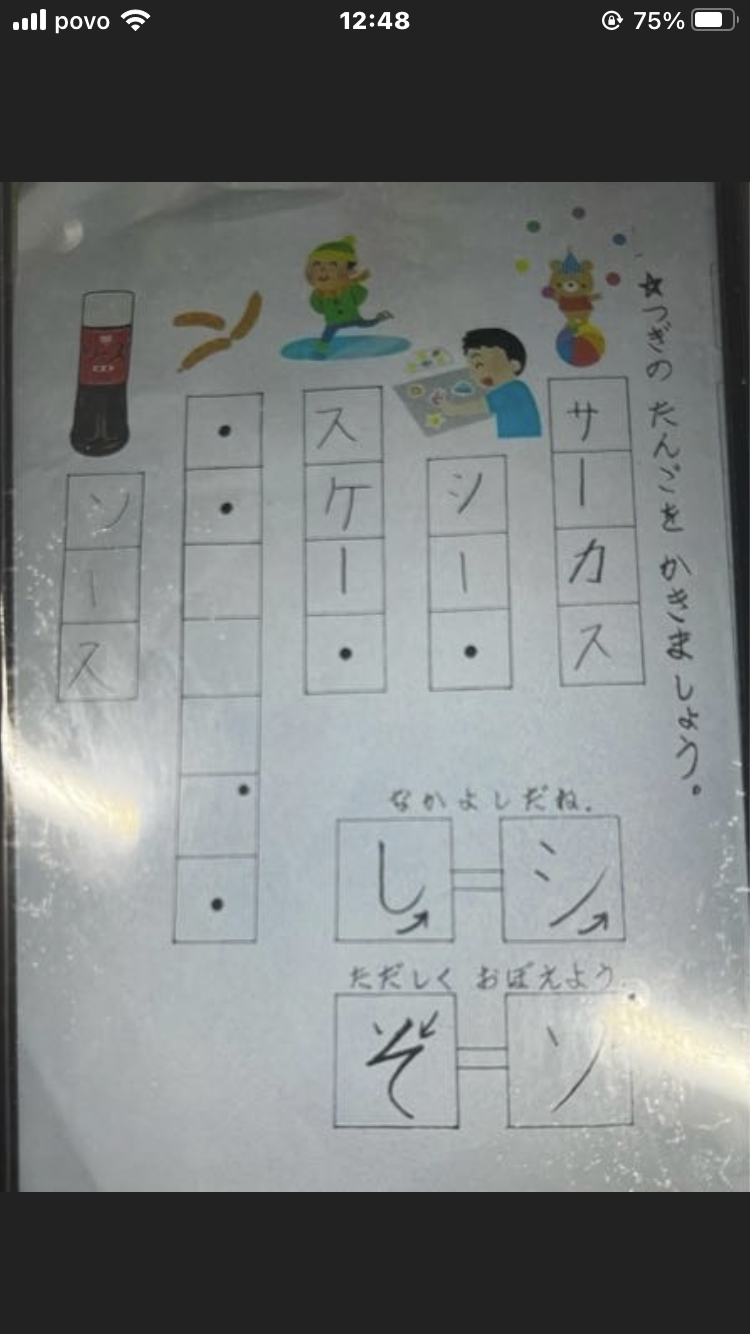 povo
12:48
75%
☆つぎの たんごを かきましょう。
サーカス
シー・
スケー・
・・・・
ソース
ソース
なかよしだね.
シ
し
ただしく おぼえよう.
ソ
そ